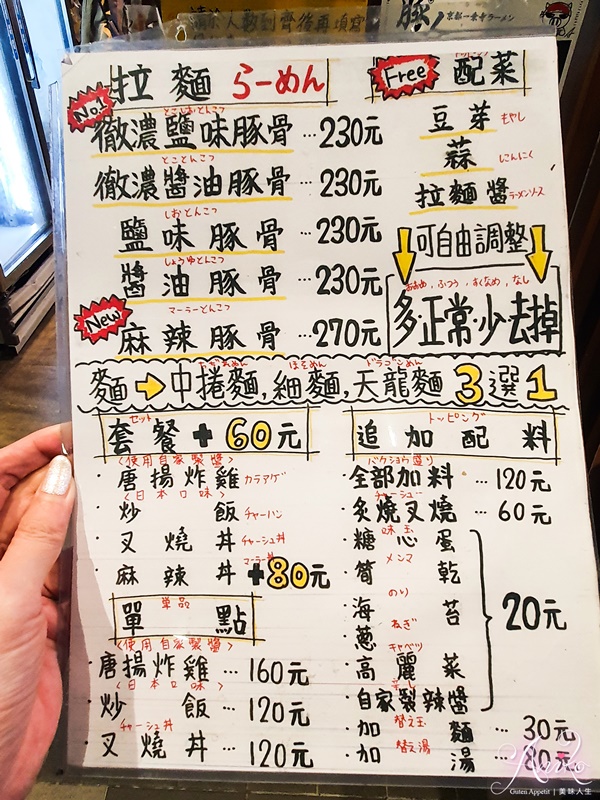 請於人數到齊後再填寫
豚！
京都一乗寺ラーメン
拉麵 らーめん
No.1
とこしおとんこつ
徹濃鹽味豚骨…230元
とことんこつ
徹濃醬油豚骨…230元
しおとんこつ
鹽味豚骨…230元
しょうゆとんこつ
醬油豚骨…230元
New
マーラーとんこつ
麻辣豚骨…270元
Free 配菜
トッピング
豆芽 もやし
蒜 にんにく
拉麵醬 ラーメンソース
可自由調整
おおめ、ふつう、すくなめ、なし
多正常·少去掉
ちぢれめん ほそめん ドラゴンめん
麵→中捲麵,細麵,天龍麵 3選1
セット
套餐+60元
(使用自家製醬)
·唐揚炸雞 カラアゲ
(日本口味)
·炒飯 チャーハン
·叉燒丼 チャーシュー丼
マーラー丼
·麻辣丼+80元
単品
單點
(使用自家製醬)
·唐揚炸雞…160元
(日本口味)
·炒飯…120元
チャーシュー丼
·叉燒丼…120元
トッピング
追加配料
バクショウ盛り
·全部加料…120元
チャーシュー
·炙燒叉燒…60元
味玉
·糖心蛋
メンマ
·筍乾
のり
·海苔
ねぎ
·蔥
キャベツ
·高麗菜
辛し
·自家製辣醬
20元
替え玉
·加麵…30元
替え湯
·加湯…80元
Guten Appetit | 美味人生